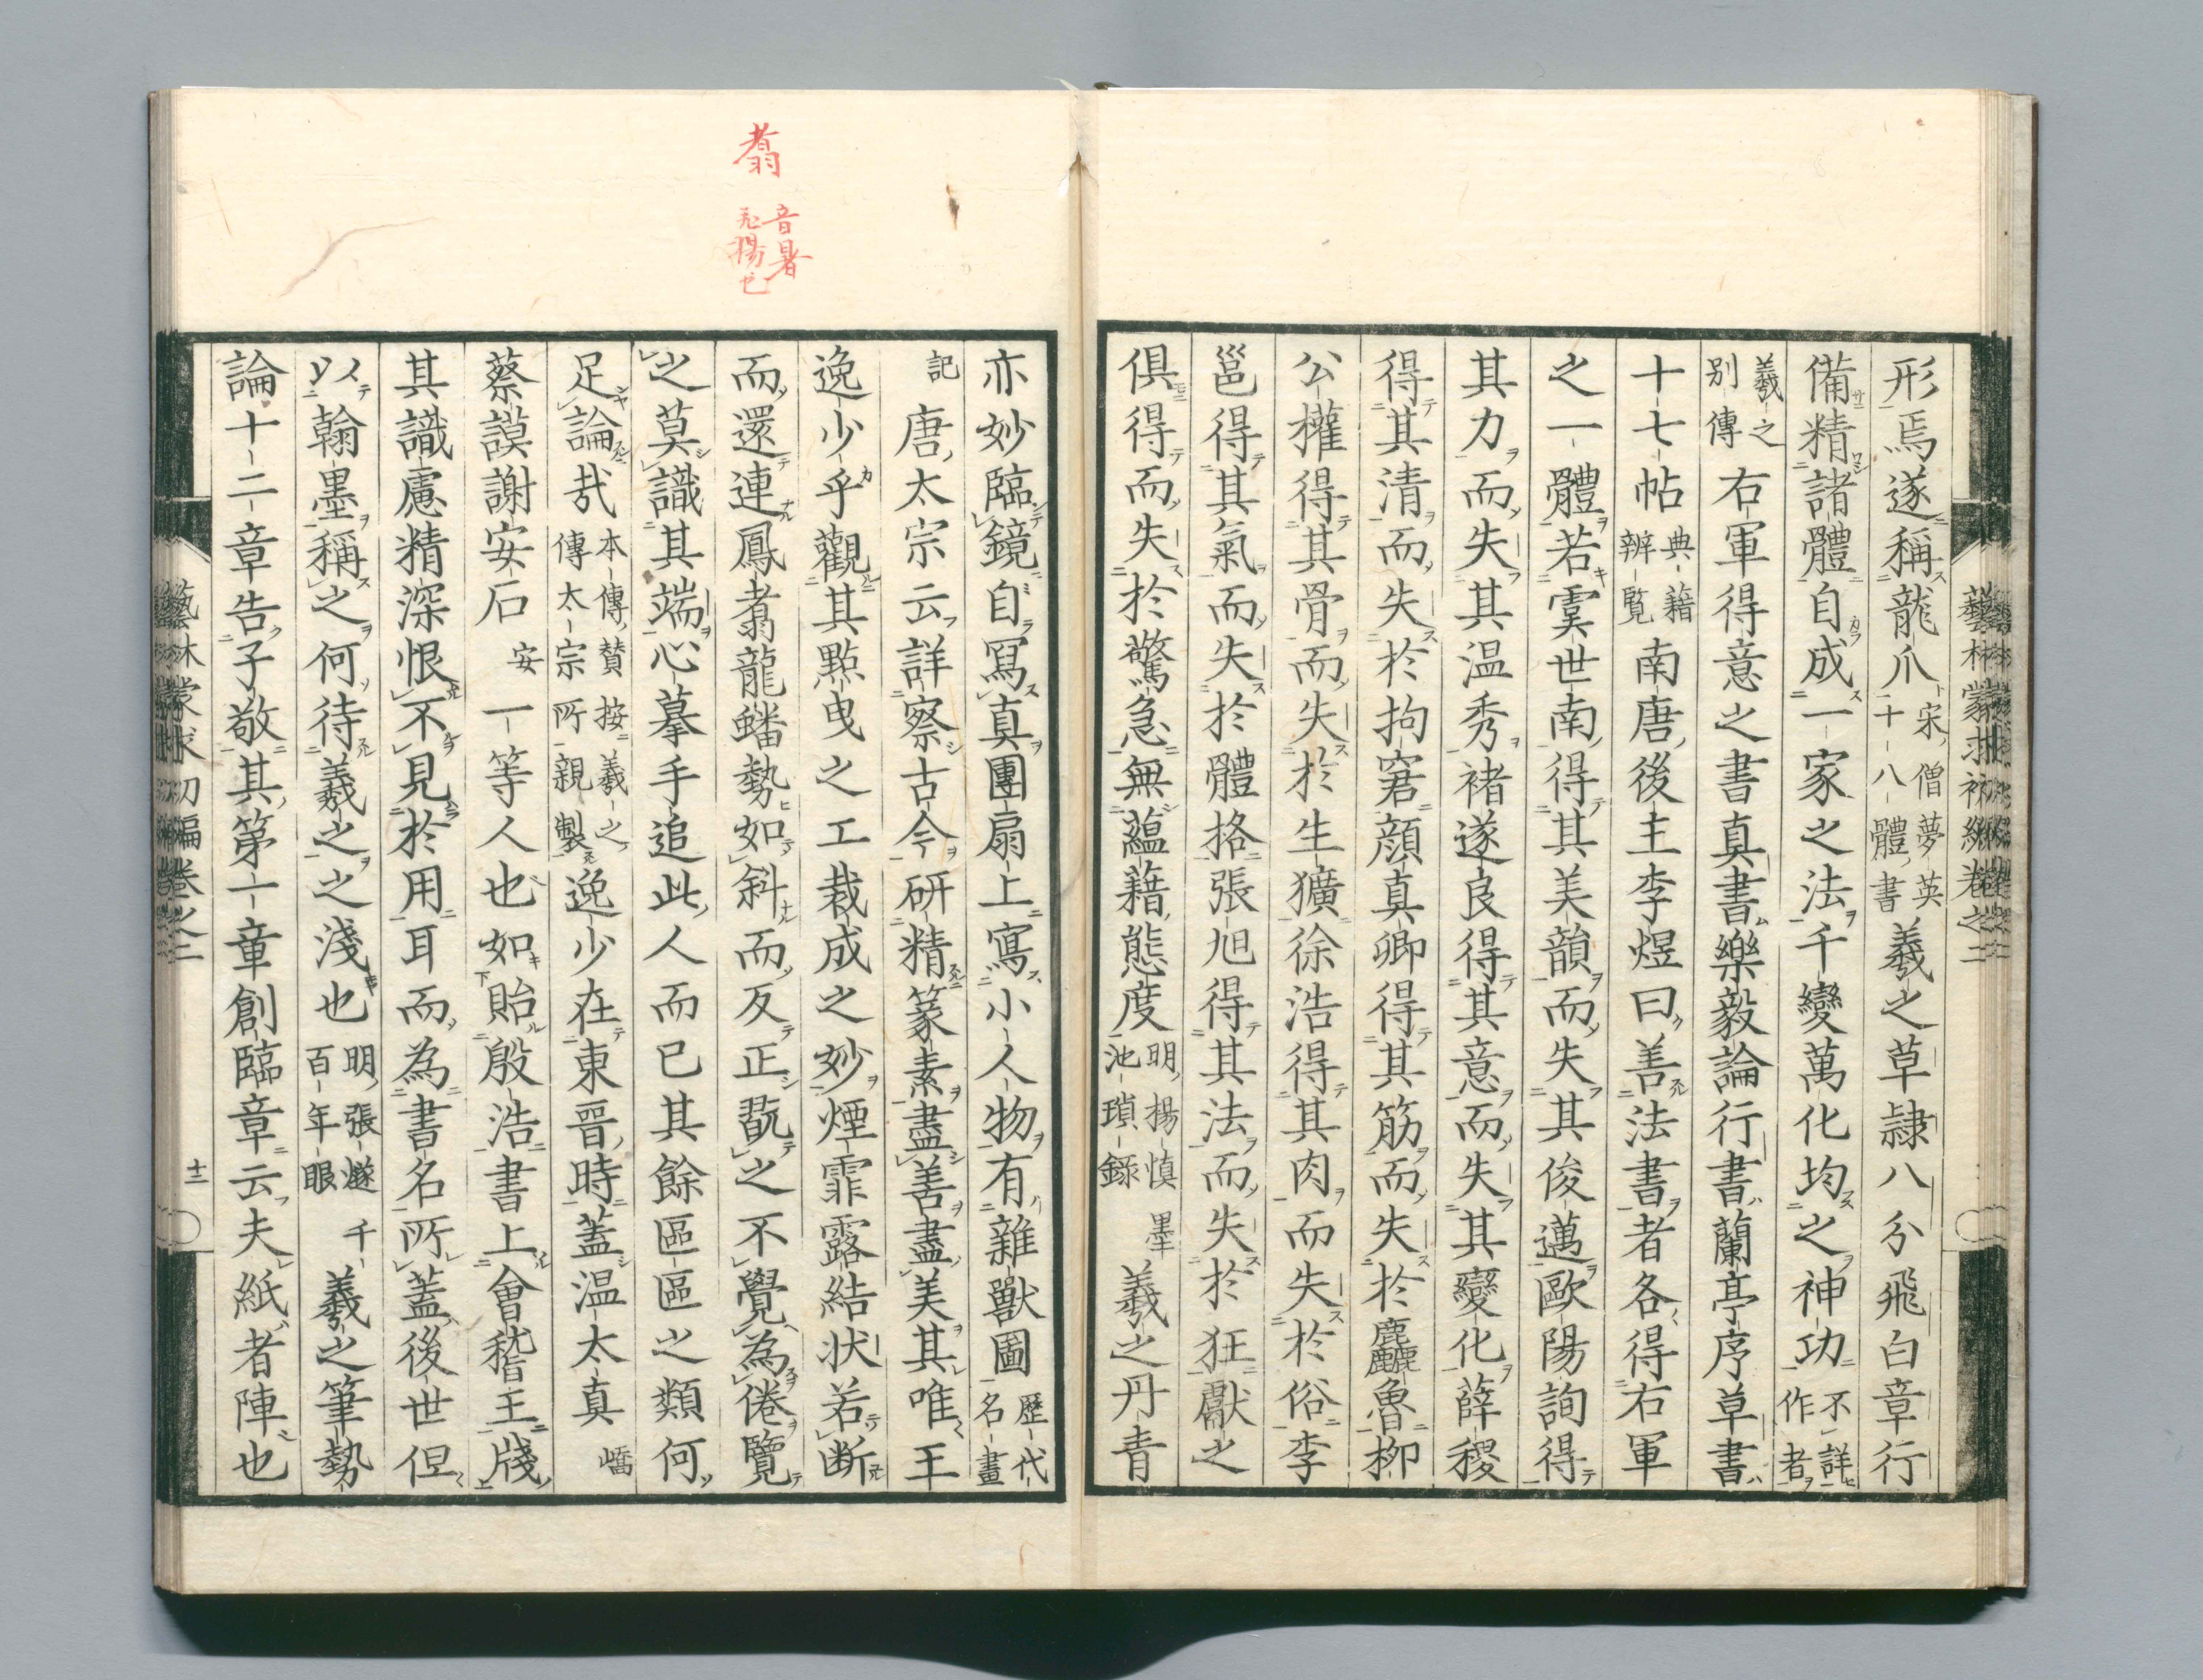 形焉遂稱龍爪宋僧夢英十八體書羲之草隷八分飛白章行
備精諸體自成一家之法千變萬化均之神功不詳作者
羲之別傳右軍得意之書真書樂毅論行書蘭亭序草書
十七帖典籍辨覧南唐後主李煜曰善法書者各得右軍
之一體若虞世南得其美韻而失其俊邁歐陽詢得
其力而失其温秀褚遂良得其意而失其變化薛稷
得其清而失於拘窘顔真卿得其筋而失於麤魯柳
公權得其骨而失於生獷徐浩得其肉而失於俗李
邕得其氣而失於體挌張旭得其法而失於狂獻之
俱得而失於驚急無蘊藉態度明楊慎墨池瑣錄羲之丹青
藝林蒙求初編卷之二
翥
音暑
飛揚也
亦妙臨鏡自冩真團扇上寫小人物有雜獸圖歷代名畫
記唐太宗云詳察古今研精篆素盡善盡美其唯王
逸少乎觀其點曳之工裁成之妙煙霏露結状若断
而還連鳳翥龍蟠勢如斜而反正翫之不覺為倦覽
之莫識其端心摹手追此人而已其餘區區之類何
足論哉本傳賛按羲之傳太宗所親製逸少在東晉時蓋温太真嶠
蔡謨謝安石安一等人也如貽殷浩書上會稽王牋
其識慮精深恨不見於用耳而為書名所蓋後世但
以翰墨稱之何待羲之之淺也明張燧千百年眼羲之筆勢
論十二章告子敬其第一章創臨章云夫紙者陣也
藝林蒙求初編卷之二
十二